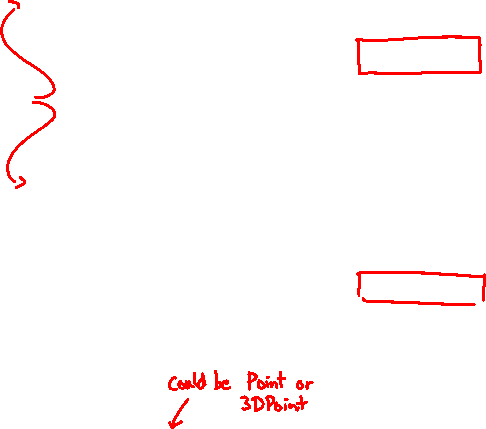 Could be Point or
3DPoint